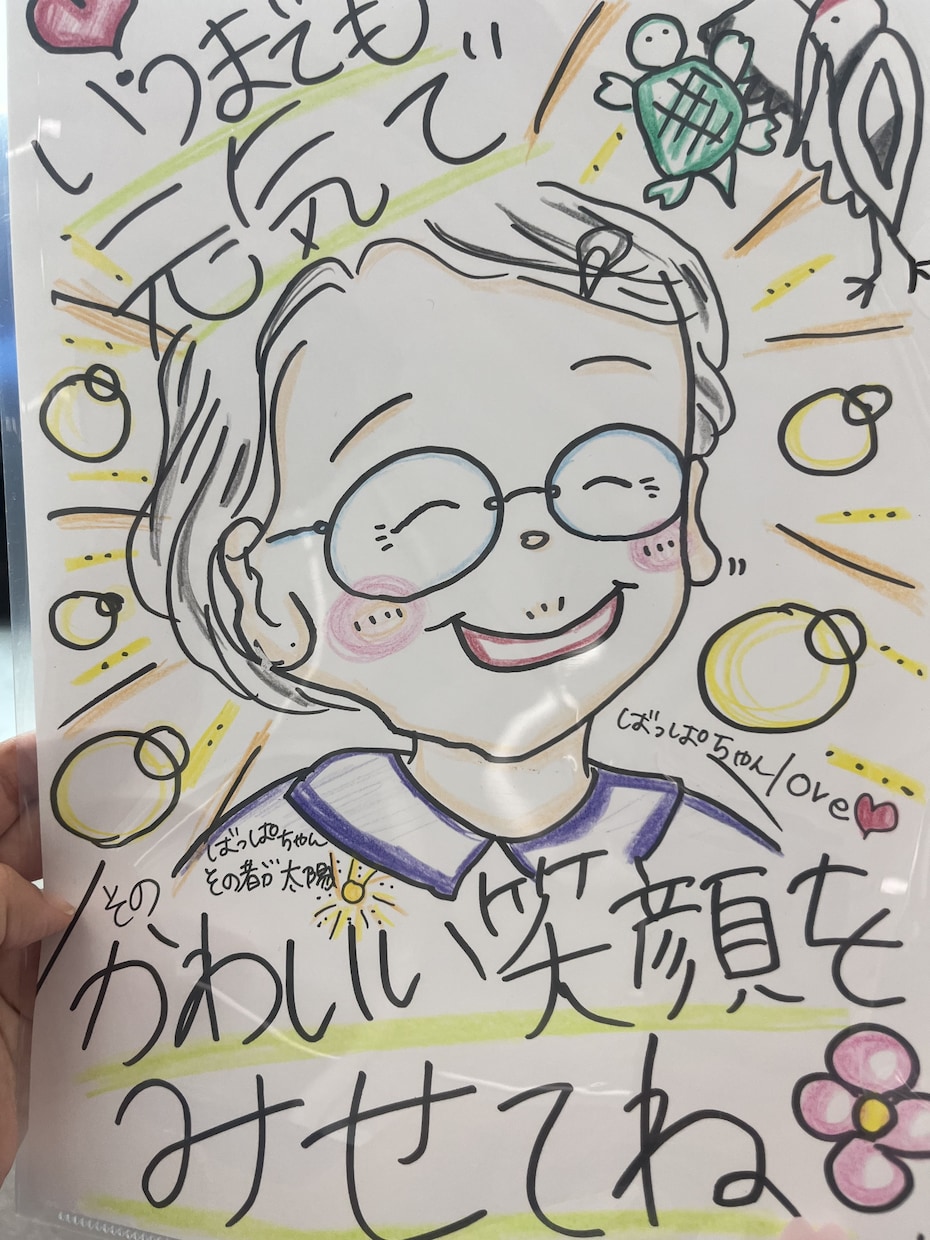 いつまでも
元気で
ばっぱちゃんlove
ばっぱちゃん
その者が太陽
その
かわいい笑顔を
みせてね